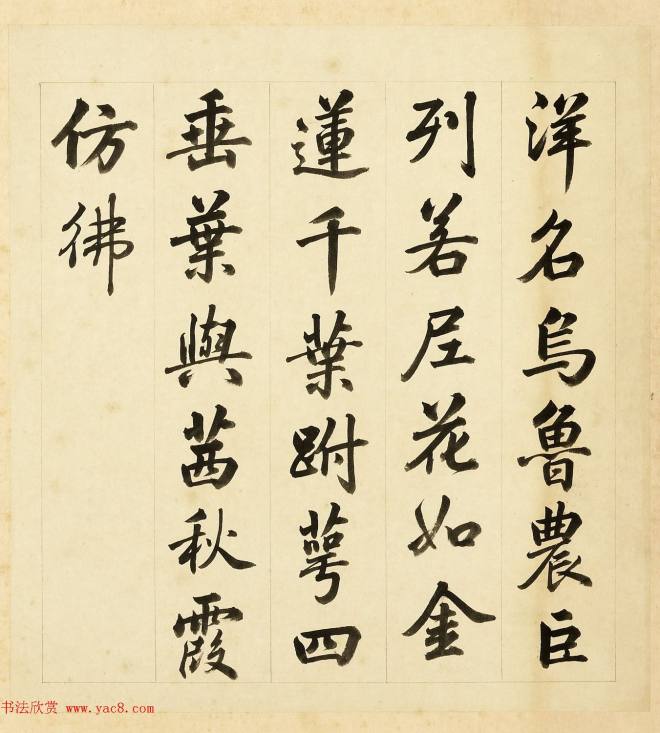 洋名烏魯農臣
列若㞐花如金
蓮千葉跗萼四
垂葉與茜秋霞
仿彿
书法欣赏 www.yac8.com